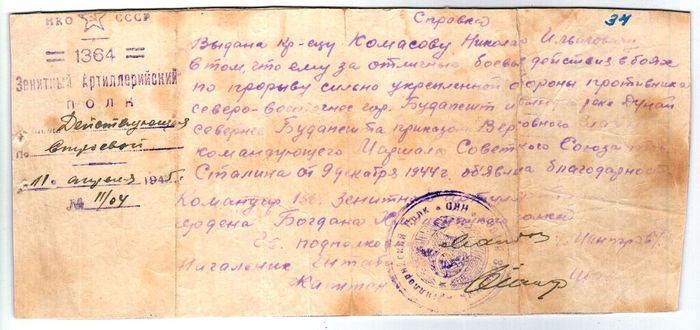 НКО СССР
= 1364 =
Зенитный Артиллерийский
полк
Действующая
По Строевой
"11" апреля 1945 г.
№ 11/04
34
Справка
Выдана кр-цу Комасову Николаю
в том, что ему за отличные боевые действия в боях
по прорыву сильно укрепленной обороны противника
северо-восточнее гор. Будапешт и реке Дунай
севернее Будапешта приказом Верховного
командующего Маршала Советского Союза тов.
Сталина от 9 декабря 1944 г. объявлена благодарность
Командир Зенитно
ордена Богдана полка
подполков
Начальник Штаба
Капитан